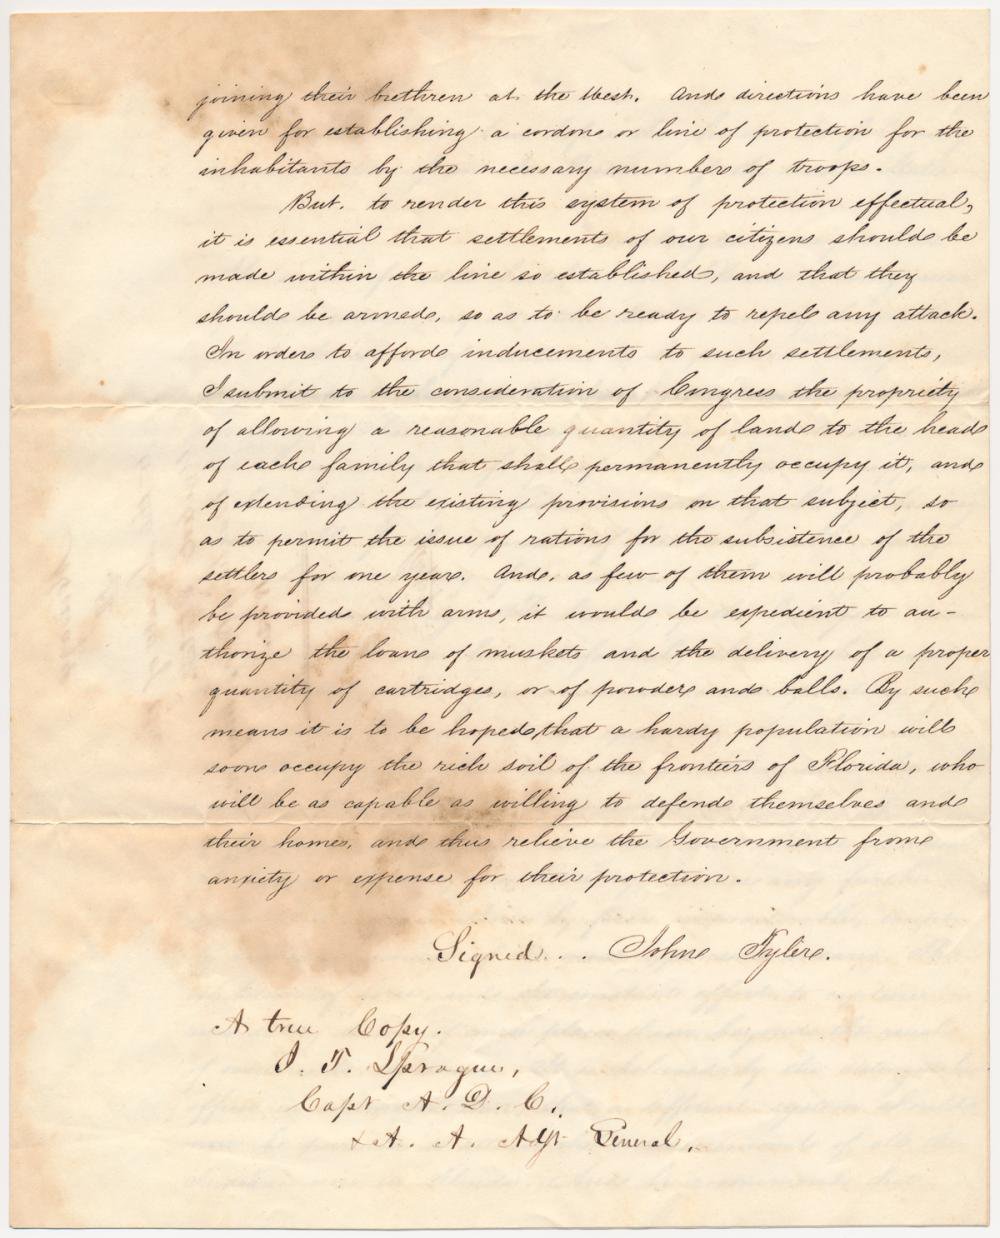 joining their brethren at the West. And directions have been
given for establishing a cordon or line of protection for the
inhabitants by the necessary numbers of troops.
But, to render this system of protection effectual,
it is essential that settlements of our citizens should be
made within the line so established, and that they
should be armed, so as to be ready to repel any attack.
In order to afford inducements to such settlements,
I submit to the consideration of Congress the propriety
of allowing a reasonable quantity of land to the head
of each family that shall permanently occupy it, and
of extending the existing provisions on that subject, so
as to permit the issue of rations for the subsistence of the
settlers for one year. And, as few of them will probably
be provided with arms, it would be expedient to au-
thorize the loan of muskets and the delivery of a proper
quantity of cartridges, or of powder and balls. By such
means it is to be hoped, that a hardy population will
soon occupy the rich soil of the frontiers of Florida, who
will be as capable as willing to defend themselves and
their homes, and thus relieve the Government from
anxiety or expense for their protection.
Signed . . John Tyler.
A true Copy.
J. T. Sprague,
Capt A. D. C.,
& A. A. Adjt General.